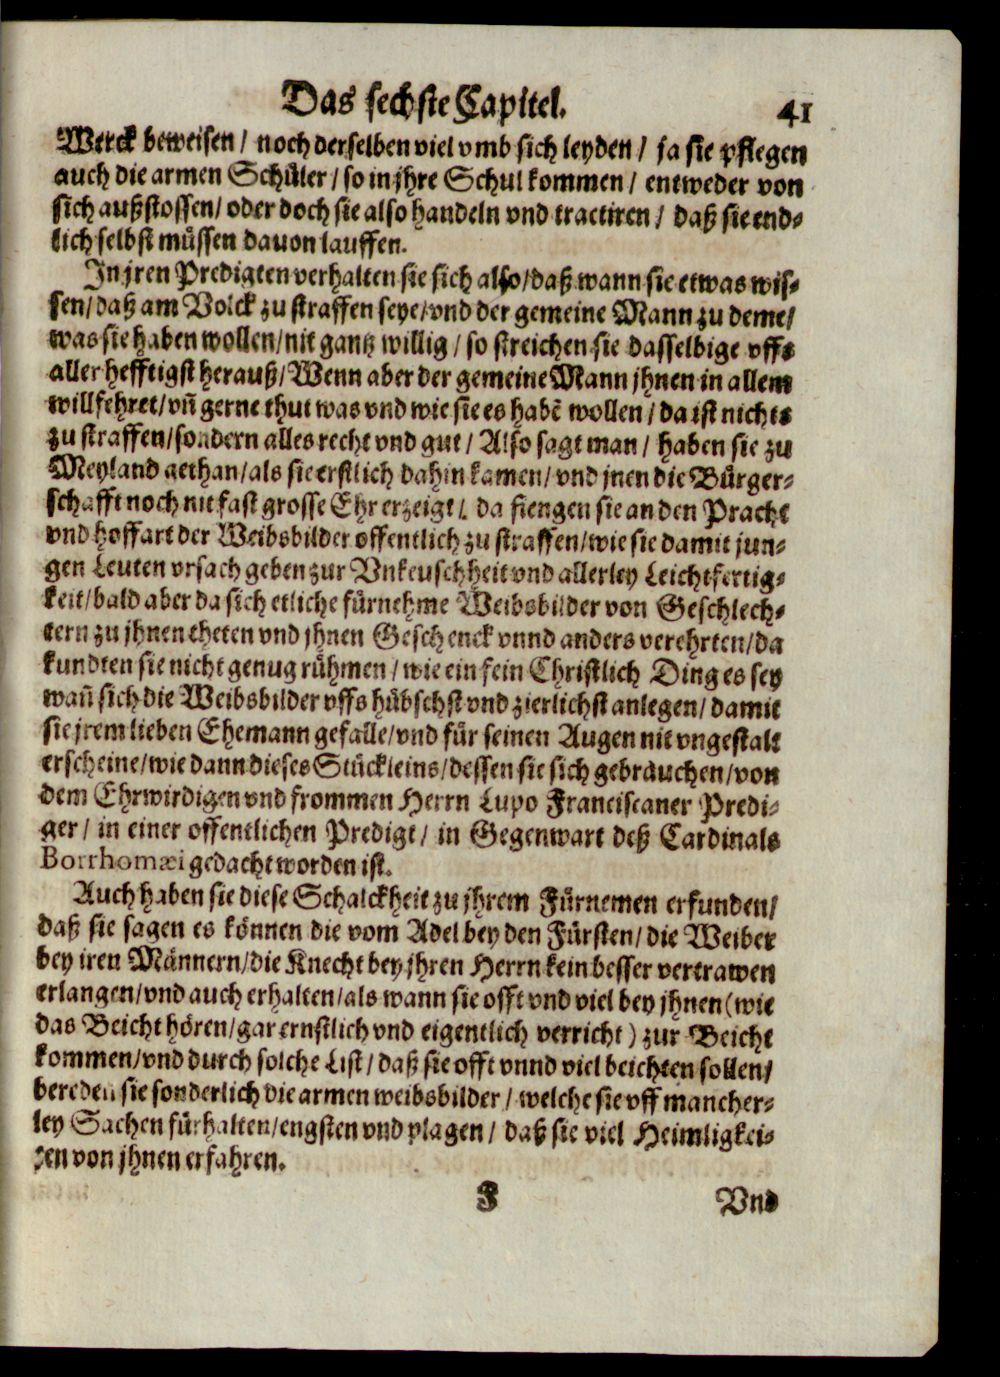 Das sechste Capitel. 41
Werck beweisen / noch derselben viel vmb sich leyden / ja sie pflegen
auch die armen Schůler / so in jhre Schul kommen / entweder von
sich außstossen / oder doch sie also handeln vnd tractiren / daß sie end-
lich selbst můssen dauon lauffen.
In jren Predigten verhalten sie sich also / daß wann sie etwas wis-
sen / daß am Volck zu straffen seye / vnd der gemeine Mann zu deme /
was sie haben wollen / nit gantz willig / so streichen sie dasselbige vffs
aller hefftigst herauß / Wenn aber der gemeine Mann jhnen in allem
willfehret / vñ gerne thut was vnd wie sie es habẽ wollen / da ist nichts
zu straffen / sondern alles recht vnd gut / Also sagt man / haben sie zu
Meyland gethan / als sie erstlich dahin kamen / vnd jnen die Bůrger-
schafft noch nit fast grosse Ehr erzeigt / da fiengen sie an den Pracht
vnd hoffart der Weibsbilder offentlich zu straffen / wie sie damit jun-
gen Leuten vrsach geben zur Vnkeuschheit vnd allerley Leichtfertig-
keit / bald aber da sich etliche fůrnehme Weibsbilder von Geschlech-
tern zu jhnen theten vnd jhnen Geschenck vnnd anders verehrten / da
kundten sie nicht genug růhmen / wie ein fein Christlich Ding es sey
wañ sich die Weibsbilder vffs hůbschst vnd zierlichst anlegen / damit
sie jrem lieben Ehemann gefalle / vnd fůr seinen Augen nit vngestalt
erscheine / wie dann dieses Stůckleins / dessen sie sich gebrauchen / von
dem Ehrwirdigen vnd frommen Herrn Lupo Franciscaner Predi-
ger / in einer offentlichen Predigt / in Gegenwart deß Cardinals
Borrhomæi gedacht worden ist.
Auch haben sie diese Schalckheit zu jhrem Fůrnemen erfunden /
daß sie sagen es kőnnen die vom Adel bey den Fůrsten / die Weiber
bey iren Månnern / die Knecht bey jhren Herrn kein besser vertrawen
erlangen / vnd auch erhalten / als wann sie offt vnd viel bey jhnen (wie
das Beicht hőren / gar ernstlich vnd eigentlich verricht) zur Beicht
kommen / vnd durch solche List / daß sie offt vnnd viel beichten sollen /
bereden sie sonderlich die armen weibsbilder / welche sie vff mancher-
ley Sachen fůrhalten / engsten vnd plagen / daß sie viel Heimligkei-
ten von jhnen erfahren.
F Vnd